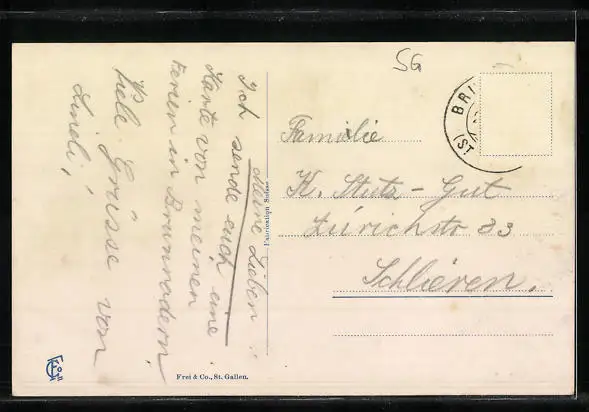 SG
BRU
(ST.
Familie
K. Stutz - Gut
Zürichstr 33
Schlieren.
Meine Lieben!
Ich sende euch eine
Karte von meinen
Ferien in Brunnadern
Viele Grüsse von
Lineli,
Fabrication Suisse
Frei & Co., St. Gallen.